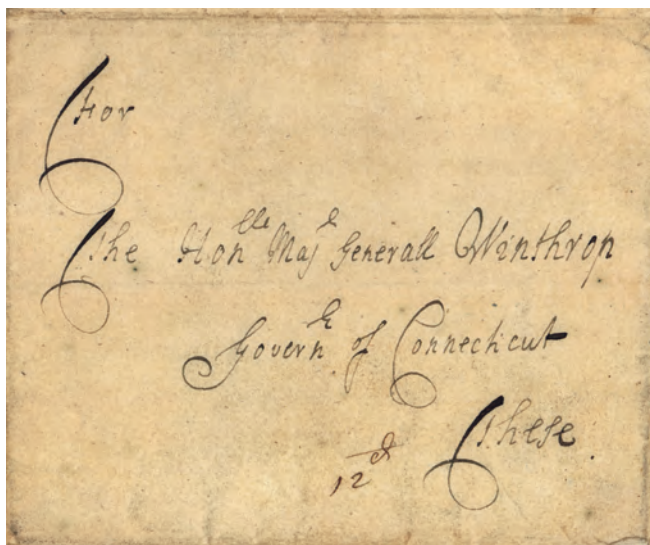 For
The Honble Majr Generall Winthrop
Governr of Connecticut
These
12d